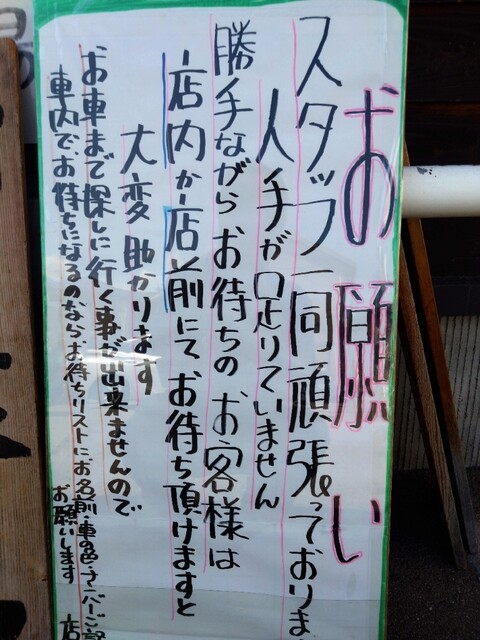 お願い
スタッフ一同頑張っておりま
人手が足りていません
勝手ながらお待ちのお客様は
店内か店前にてお待ち頂けますと
大変助かります
お車まで探しに行く事が出来ませんので
車内でお待ちになるのならお待ちリストにお名前・車の色・ナンバーご記
お願いします
店